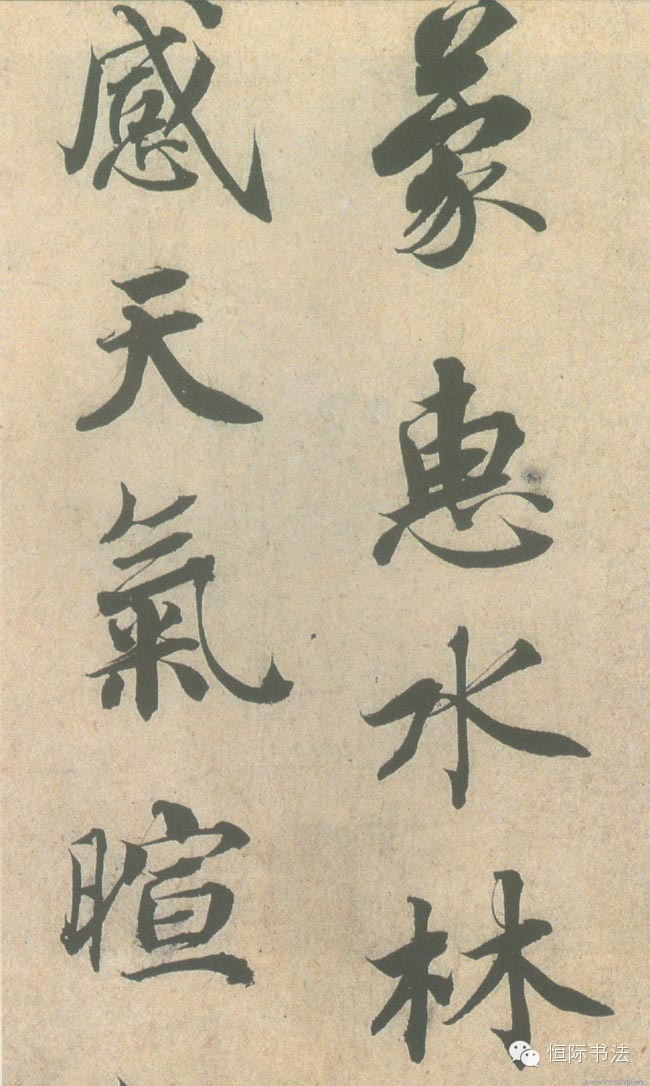 蒙惠水林
感天氣暄
恒际书法